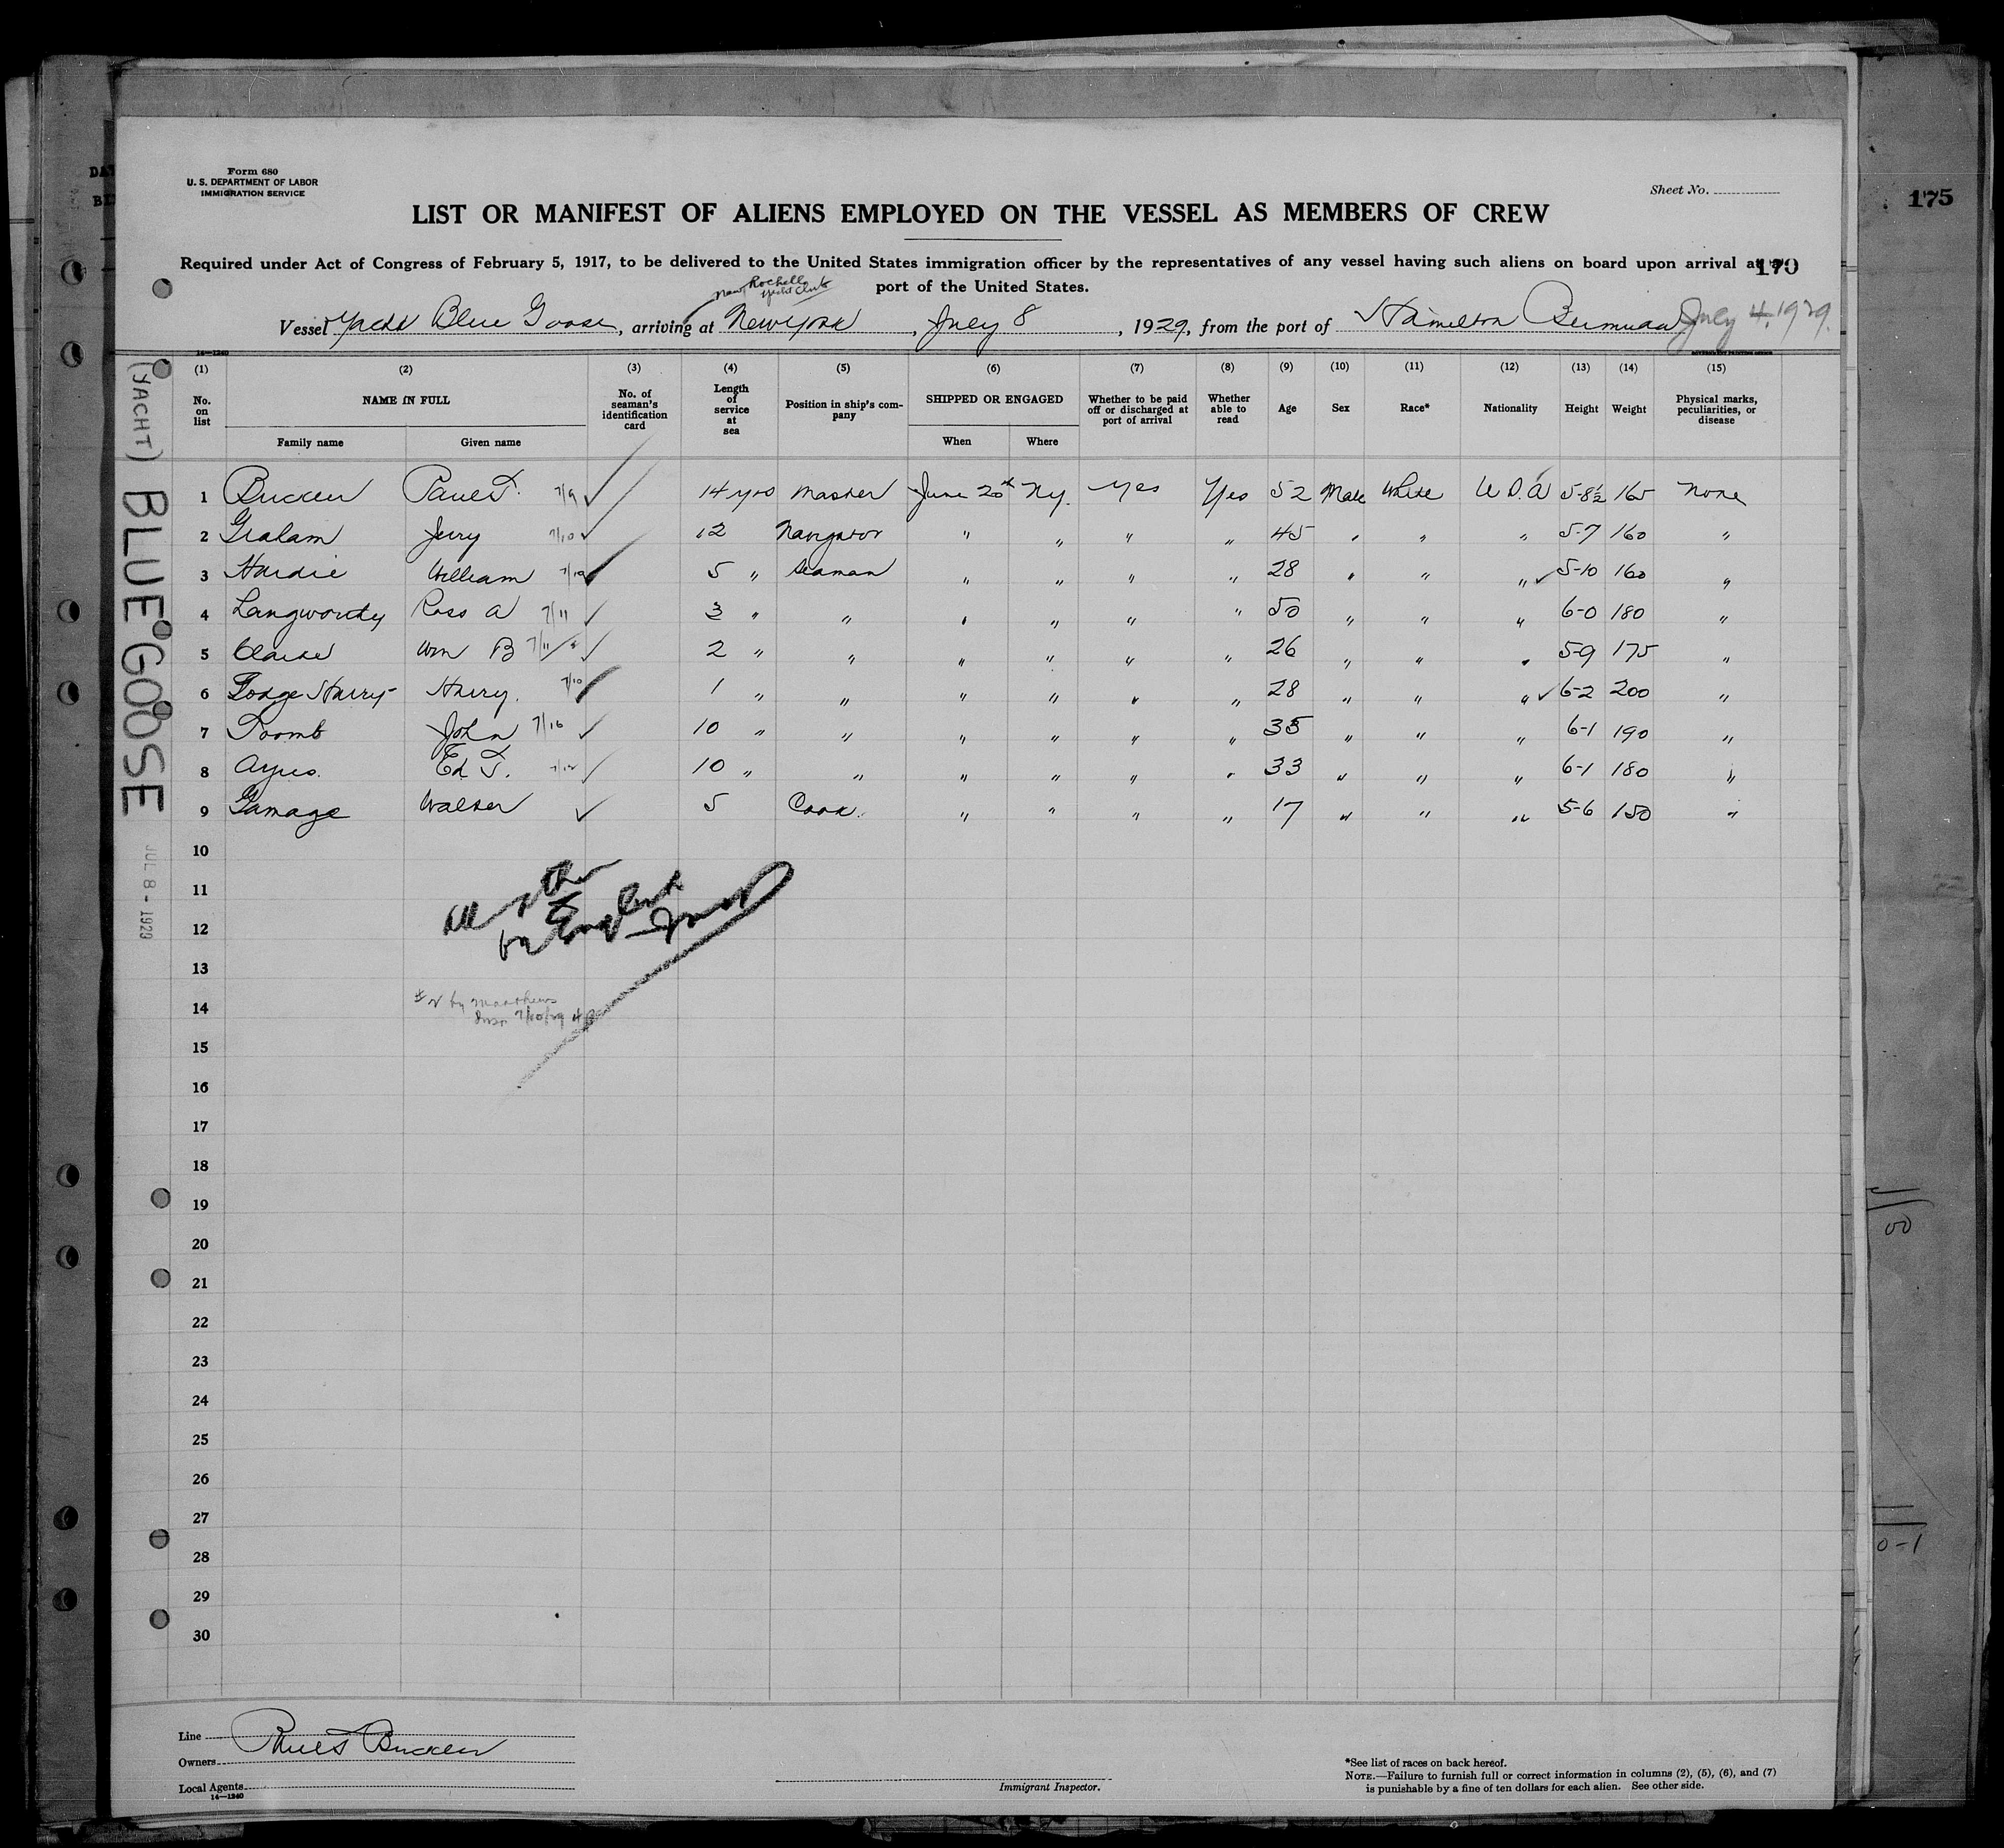 Form 680
U. S. DEPARTMENT OF LABOR
IMMIGRATION SERVICE
Sheet No.
175
LIST OR MANIFEST OF ALIENS EMPLOYED ON THE VESSEL AS MEMBERS OF CREW
Required under Act of Congress of February 5, 1917, to be delivered to the United States immigration officer by the representatives of any vessel having such aliens on board upon arrival at
170
port of the United States.
New Rochelle
Yacht Club
Vessel Yacht Blue Goose, arriving at New York, July 8, 1929, from the port of Hamilton Bermuda July 4, 1929.
14—1240
(1) (2) (3) (4) (5) (6) (7) (8) (9) (10) (11) (12) (13) (14) (15)
No. on list NAME IN FULL Family name Given name No. of seaman's identification card Length of service at sea Position in ship's company SHIPPED OR ENGAGED When Where Whether to be paid off or discharged at port of arrival Whether able to read Age Sex Race* Nationality Height Weight Physical marks, peculiarities, or disease
1 Paul T. 7/9 ✓ 14 yrs Master June 20th Ny. Yes Yes 52 Male White U S A 5-8½ 165 None
2 Graham Jerry 7/10 ✓ 12 Navigator " " " " 45 " " " 5-7 160 "
3 Hardie William 7/19 ✓ 5 " Seaman " " " " 28 " " " ✓ 5-10 160 "
4 Langworthy Ross A 7/11 ✓ 3 " " " " " " 50 " " " 6-0 180 "
5 Wm B 7/11 ✓ 2 " " " " " " 26 " " " 5-9 175 "
6 Harry. 7/10 ✓ 1 " " " " " " 28 " " " ✓ 6-2 200 "
7 Toomb John 7/16 ✓ 10 " " " " " " 35 " " " 6-1 190 "
8 Ayres. Ed T. 7/12 ✓ 10 " " " " " " 33 " " " 6-1 180 "
9 Gamage Walter ✓ 5 Cook. " " " " 17 " " " 5-6 150 "
10
11
12
13
14
15
16
17
18
19
20
21
22
23
24
25
26
27
28
29
30
#2 by Matthews
Insp 7/10/29
(YACHT) BLUE GOOSE
JUL 8 - 1929
Line
Owners
Local Agents
14—1240
Immigrant Inspector.
*See list of races on back hereof.
NOTE.—Failure to furnish full or correct information in columns (2), (5), (6), and (7)
is punishable by a fine of ten dollars for each alien. See other side.